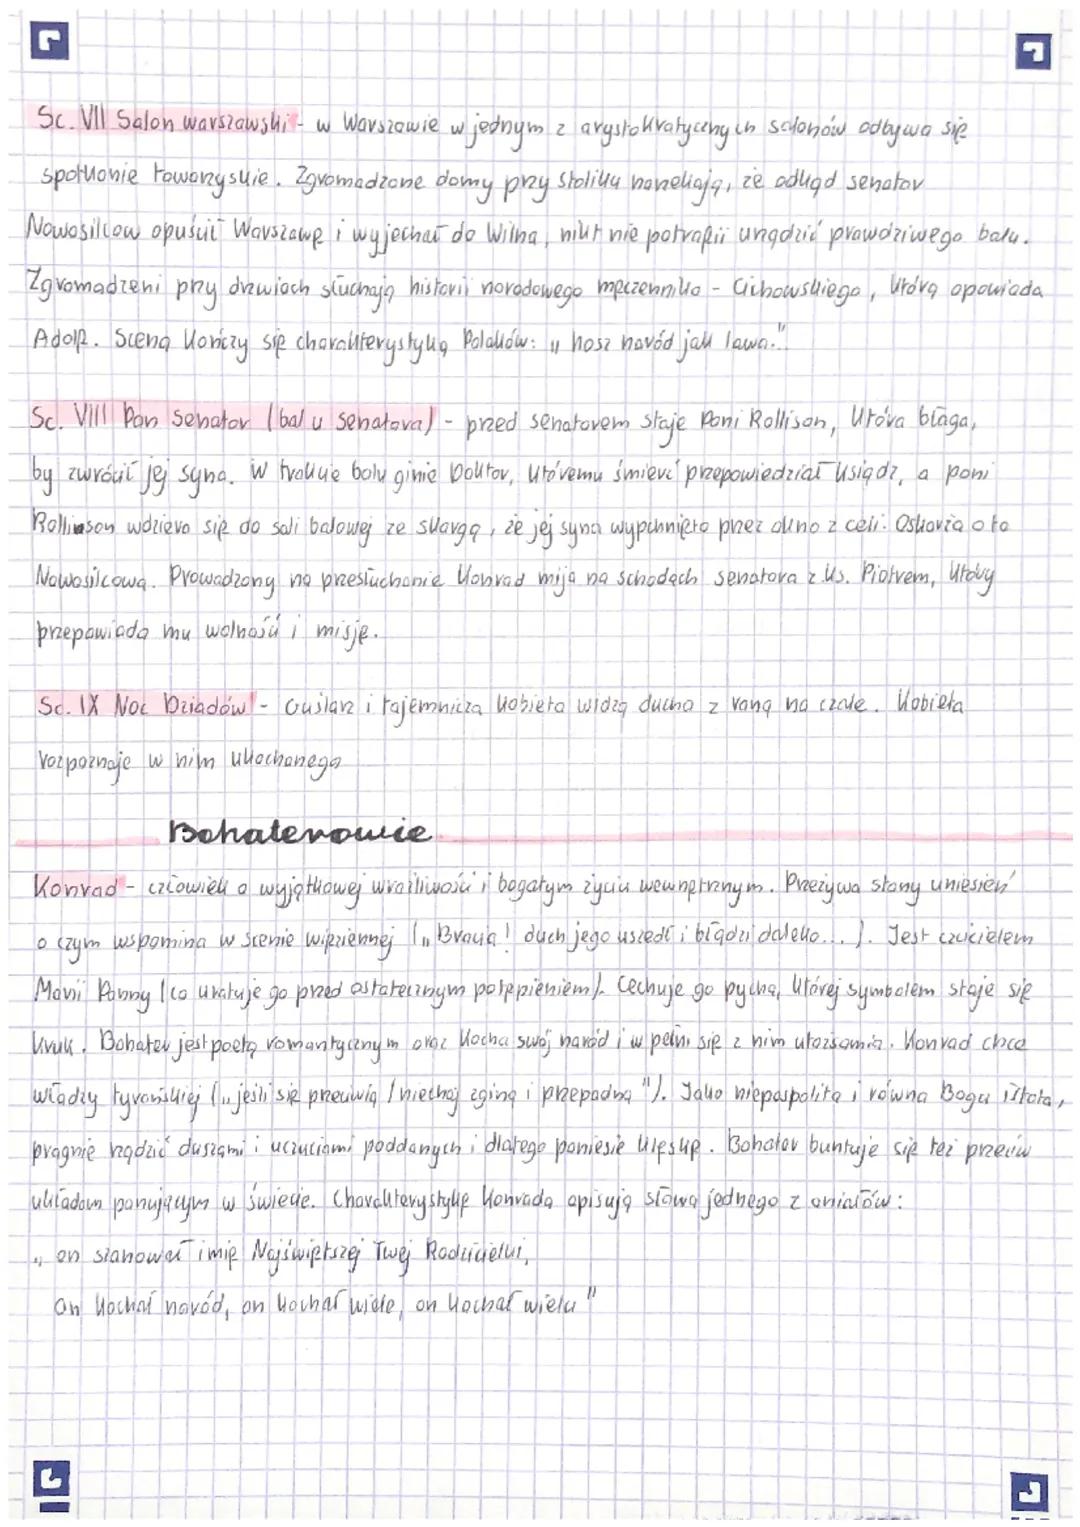 Sc. VII Salon warszawski - w Warszawie w jednym z arystokratycznych salonów odbywa się
spotkanie towarzyskie. Zgromadzone damy przy stoliku narzekają, że odkąd senator
Nowosilcow opuścił Warszawę i wyjechał do Wilna, nikt nie potrafii urządzić prawdziwego balu.
Zgromadzeni przy drzwiach słuchają historii narodowego męczennika - Cichowskiego, którą opowiada
Adolf. Scena kończy się charakterystyką Polaków: „nasz naród jak lawa..."
Sc. VIII Pan Senator (bal u Senatora) - przed senatorem staje Pani Rollison, która błaga,
by zwrócił jej syna. W trakcie balu ginie Doktor, któremu śmierć przepowiedział ksiądz, a pani
Rollinson wdziera się do sali balowej ze skargą, że jej syna wypchnięto przez okno z celi. Oskarża o to
Nowosilcowa. Prowadzony na przesłuchanie Konrad mija na schodach senatora z ks. Piotrem, który
przepowiada mu wolność i misję.
Sc. IX Noc Dziadów - Guślarz i tajemnicza kobieta widzą ducha z raną na czole. Kobieta
rozpoznaje w nim ukochanego
Bohaterowie
Konrad - człowiek o wyjątkowej wrażliwości i bogatym życiu wewnętrznym. Przeżywa stany uniesień
o czym wspomina w scenie więziennej („Bracia! duch jego uszedł i błądzi daleko...). Jest czcicielem
Marii Panny (co uratuje go przed ostatecznym potępieniem). Cechuje go pycha, której symbolem staje się
kruk. Bohater jest poetą romantycznym oraz kocha swój naród i w pełni się z nim utożsamia. Konrad chce
władzy tyrańskiej („jeśli się przeciwią / niechaj zginą i przepadną"). Jako niepospolita i równa Bogu istota,
pragnie rządzić duszami i uczuciami poddanych i dlatego poniesie klęskę. Bohater buntuje się też przeciw
układom panującym w świecie. Charakterystykę Konrada opisują słowa jednego z aniołów:
„on szanował imię Najświętszej Twej Rodzicielki,
On kochał naród, on kochał wiele, on kochał wielu"